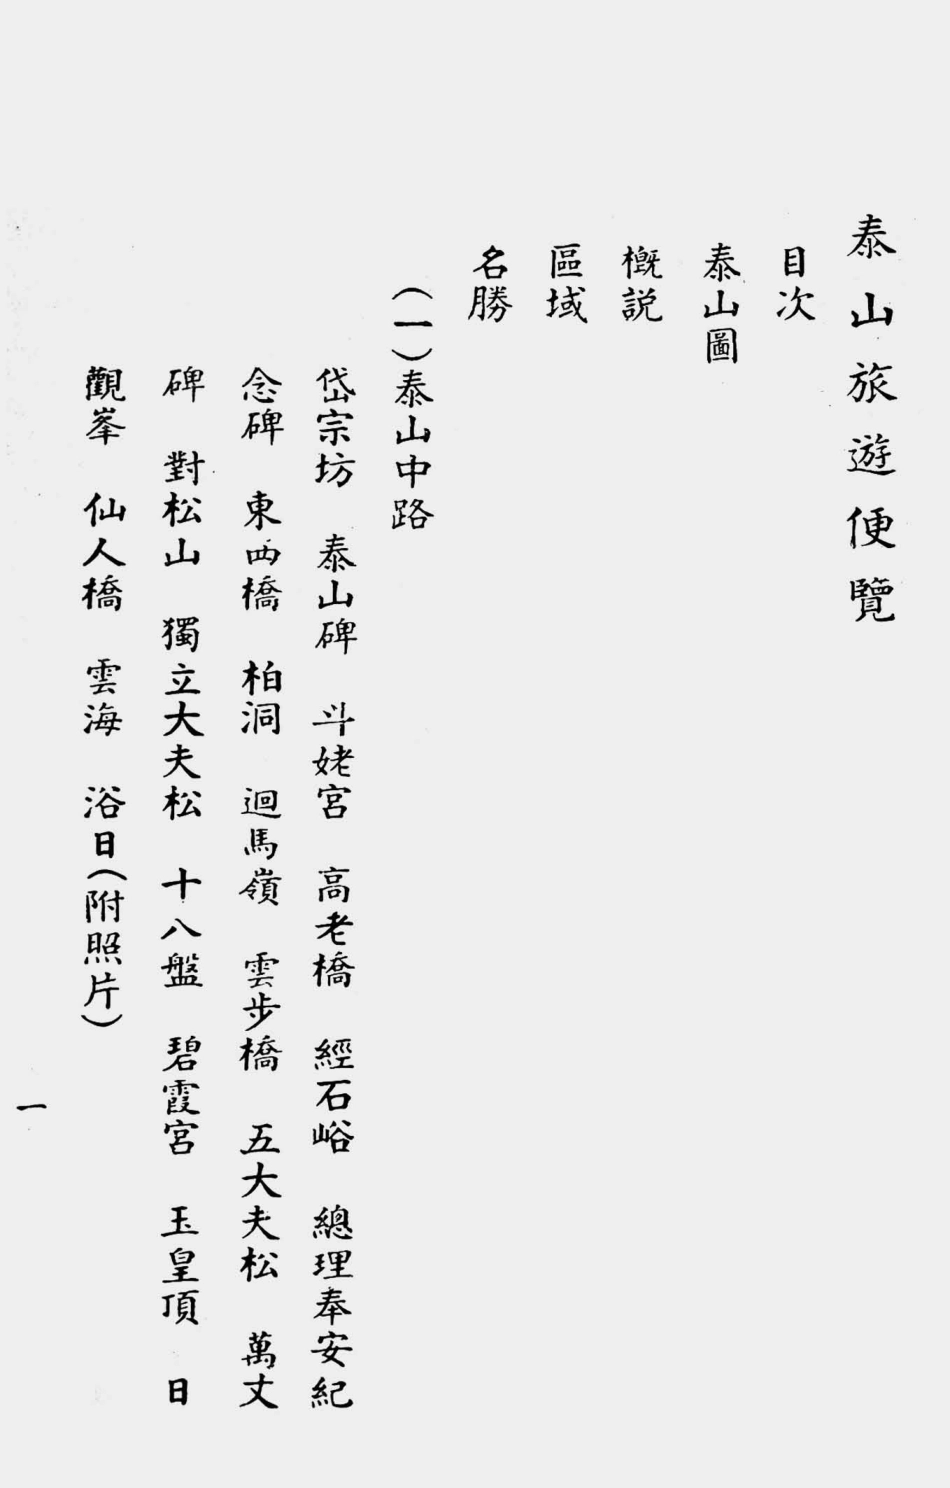 泰山旅遊便覽
目次
泰山圖
概説
區域
名勝
(一)泰山中路
岱宗坊 泰山碑 斗姥宮 高老橋 經石峪 總理奉安紀
念碑 東西橋 柏洞 迴馬嶺 雲步橋 五大夫松 萬丈
碑 對松山 獨立大夫松 十八盤 碧霞宮 玉皇頂 日
觀峯 仙人橋 雲海 浴日(附照片)
一